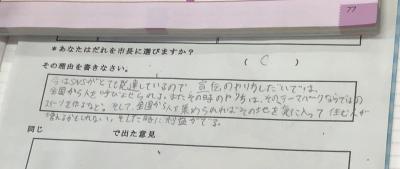 77
*あなたはだれを市長に選びますか? ( C )
その理由を書きなさい。
今はSNSがとても発達しているので、宣伝のやりかたしだいでは、
全国から人を呼びよせられる。またその時のやり方は、そのテーマパークならではの
スイーツを作るなど。そして、全国から人を集められればその地を気に入って住む人が
増えるかもしれない。そした時に利益がでる。
同じ で出た意見